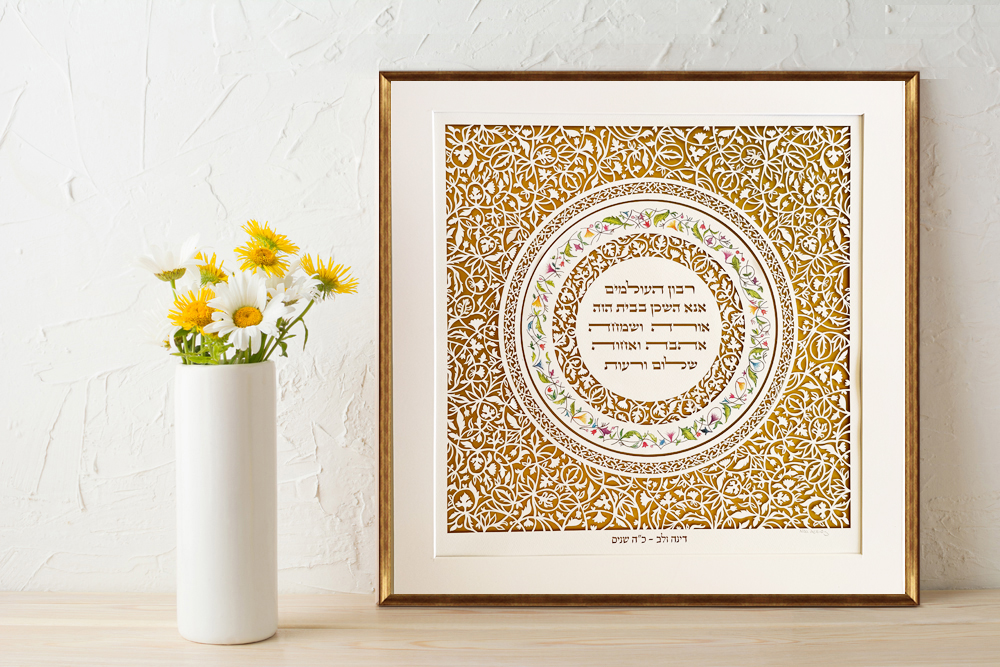 רבון העולמים
אנא השכן בבית הזה
אורה ושמחה
אהבה ואחוה
שלום ורעות
דינה ולב - כ"ה שנים